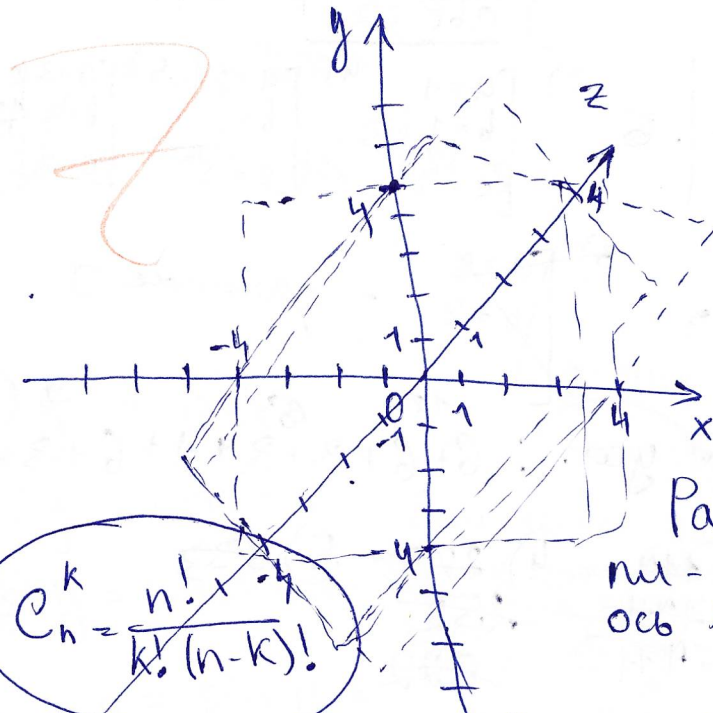 y
z
7
4
4
-4
1
1
0
1
4
x
-1
-4
-4
Ра
пи -
ось
C_n^k = n! / k! (n-k)!